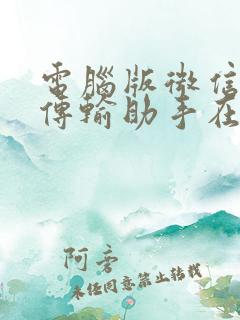 電腦版微信
傳輸助手在
阿雲
未經同意禁止轉載